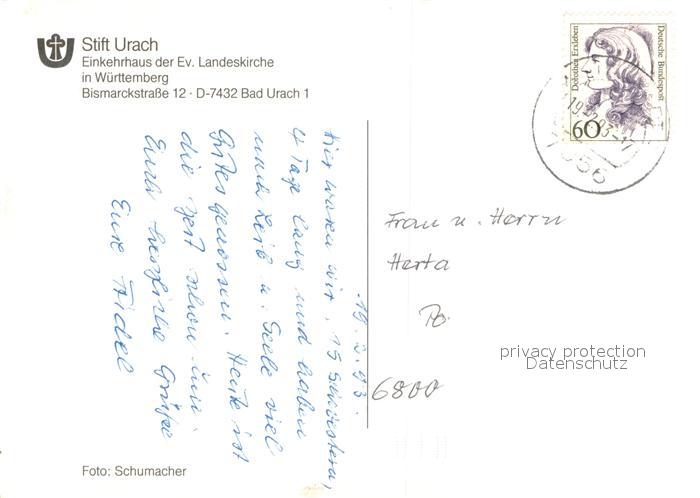 Stift Urach
Einkehrhaus der Ev. Landeskirche
in Württemberg
Bismarckstraße 12 · D-7432 Bad Urach 1
Dorothea Erxleben
Deutsche Bundespost
60
19.2.93.
Hier waren wir, 15 Schwestern,
4 Tage lang und haben
Leib u. Seele viel
Gutes genossen. Heute ist
die Zeit schon um.
Euch herzliche Grüße
Eure
Frau u. Herrn
Herta
6800
privacy protection
Datenschutz
Foto: Schumacher